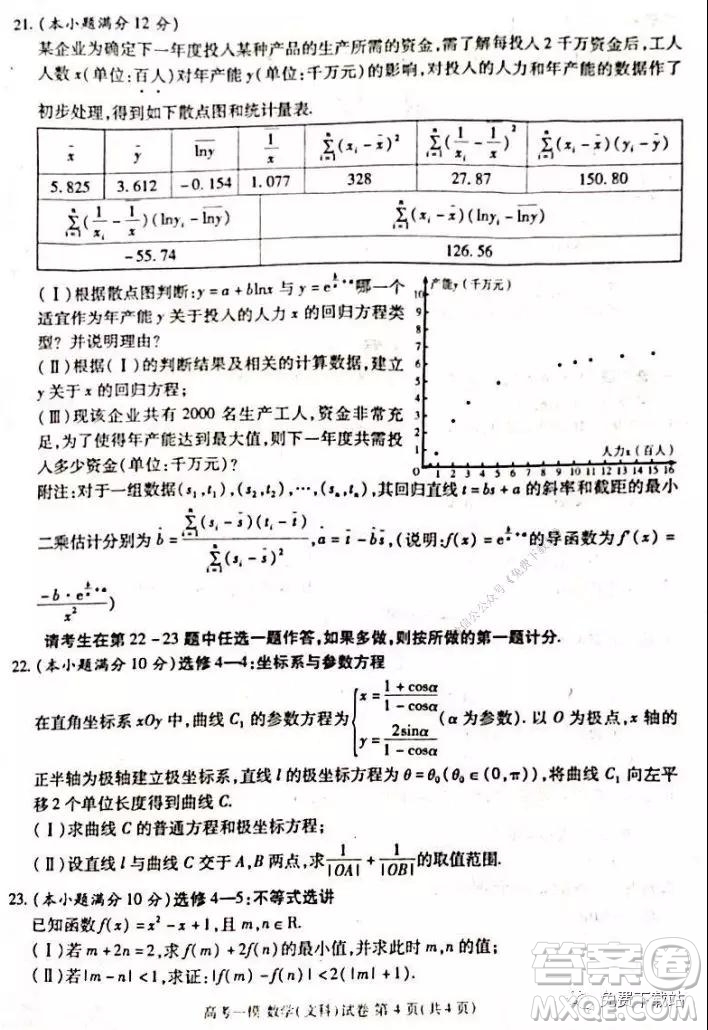 21.(本小题满分12分)
某企业为确定下一年度投入某种产品的生产所需的资金,需了解每投入2千万资金后,工人
人数x(单位:百人)对年产能y(单位:千万元)的影响,对投入的人力和年产能的数据作了
初步处理,得到如下散点图和统计量表.
x̄ ȳ \overline{lny} \overline{\frac{1}{x}} \sum_{i=1}^{n}(x_i-x̄)^2 \sum_{i=1}^{n}(\frac{1}{x_i}-\overline{\frac{1}{x}})^2 \sum_{i=1}^{n}(x_i-x̄)(y_i-ȳ)
5.825 3.612 -0.154 1.077 328 27.87 150.80
\sum_{i=1}^{n}(\frac{1}{x_i}-\overline{\frac{1}{x}})(lny_i-\overline{lny}) \sum_{i=1}^{n}(x_i-x̄)(lny_i-\overline{lny})
-55.74 126.56
(Ⅰ)根据散点图判断:y=a+blnx与y=e^{\frac{b}{x}+a}哪一个
适宜作为年产能y关于投入的人力x的回归方程类
型?并说明理由?
(Ⅱ)根据(Ⅰ)的判断结果及相关的计算数据,建立
y关于x的回归方程;
(Ⅲ)现该企业共有2000名生产工人,资金非常充
足,为了使得年产能达到最大值,则下一年度共需投
入多少资金(单位:千万元)?
产能y(千万元)
10
9
8
7
6
5
4
3
2
1
人力x(百人)
0 1 2 3 4 5 6 7 8 9 10 11 12 13 14 15 16
附注:对于一组数据(s_1,t_1),(s_2,t_2),…,(s_n,t_n),其回归直线t=bs+a的斜率和截距的最小
二乘估计分别为b̂=\frac{\sum_{i=1}^{n}(s_i-s̄)(t_i-t̄)}{\sum_{i=1}^{n}(s_i-s̄)^2},â=t̄-b̂s̄,(说明:f(x)=e^{\frac{b}{x}+a}的导函数为f'(x)=
\frac{-b·e^{\frac{b}{x}+a}}{x^2})
请考生在第22-23题中任选一题作答,如果多做,则按所做的第一题计分.
22.(本小题满分10分)选修4—4:坐标系与参数方程
在直角坐标系xOy中,曲线C_1的参数方程为{x=\frac{1+cosα}{1-cosα}, y=\frac{2sinα}{1-cosα}(α为参数).以O为极点,x轴的
正半轴为极轴建立极坐标系,直线l的极坐标方程为θ=θ_0(θ_0∈(0,π)),将曲线C_1向左平
移2个单位长度得到曲线C.
(Ⅰ)求曲线C的普通方程和极坐标方程;
(Ⅱ)设直线l与曲线C交于A,B两点,求\frac{1}{|OA|}+\frac{1}{|OB|}的取值范围.
23.(本小题满分10分)选修4—5:不等式选讲
已知函数f(x)=x²-x+1,且m,n∈R.
(Ⅰ)若m+2n=2,求f(m)+2f(n)的最小值,并求此时m,n的值;
(Ⅱ)若|m-n|<1,求证:|f(m)-f(n)|<2(|m|+1).
高考一模 数学(文科)试卷 第4页(共4页)
答案圈
免费下载站